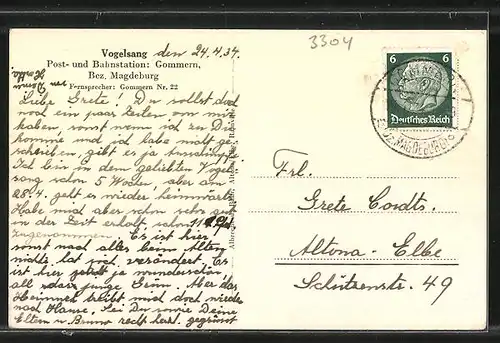 Vogelsang den 24.4.34.
Post- und Bahnstation: Gommern,
Bez. Magdeburg
Fernsprecher: Gommern Nr. 22
Liebe Grete! Du sollst doch
noch ein paar Zeilen von mir
haben, sonst wenn ich zu Dir
komme und ich habe nicht ge-
schrieben, gibt es ja
Ich bin in dem geliebten Vogel
sang schon 5 Wochen, aber am
28.4. geht es wieder heimwärts
Habe mich aber schon sehr gut
in der Zeit erholt, schon 11
zugenommen. Es ist hier
sonst noch alles beim Alten
nichts hat sich verändert. Es
ist hier jetzt ja wunderschön
all das junge Grün. Aber das
Heimweh treibt mich doch wieder
nach Hause. Sei Du sowie Deine
Eltern u. Bruno recht herzl. gegrüsst
3304
6 6
Deutsches Reich
GOMMERN
BZ. MAGDEBURG
Frl.
Grete Cordts.
Altona Elbe
Schützenstr. 49